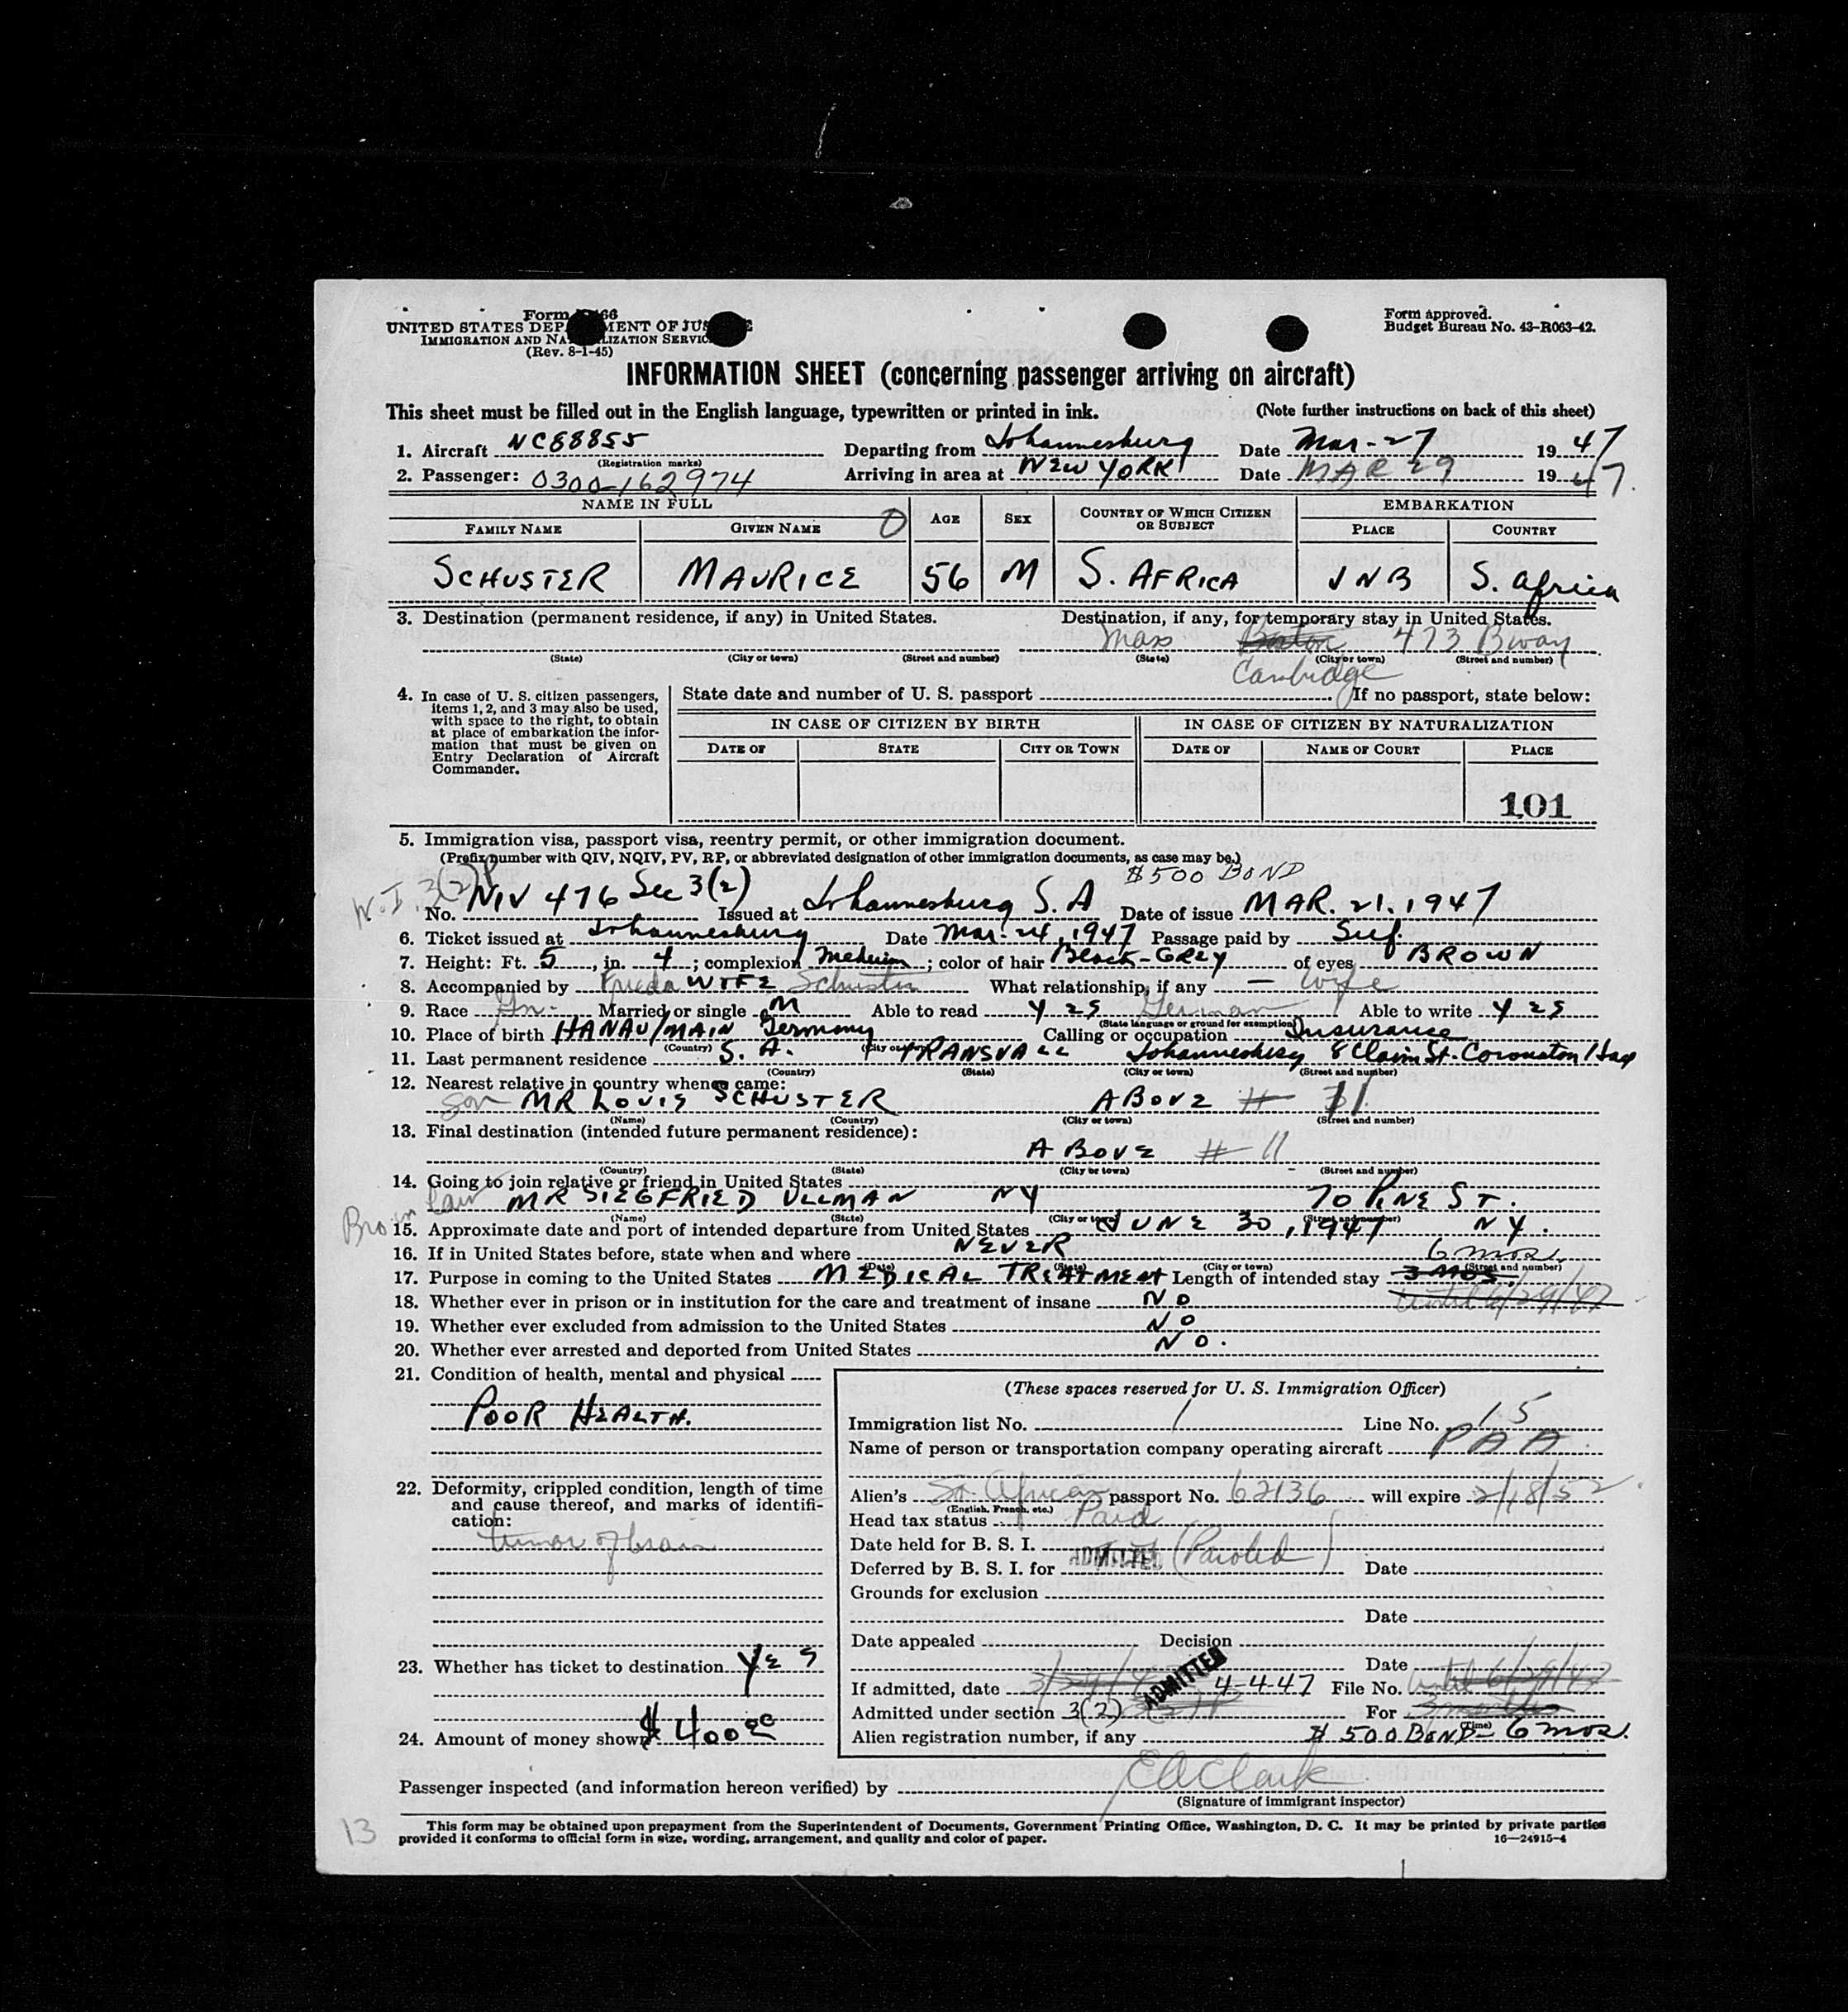 Form 66
UNITED STATES DEP MENT OF JUS E
IMMIGRATION AND NA LIZATION SERVIC
(Rev. 8-1-45)
Form approved.
Budget Bureau No. 43-R063-42.
INFORMATION SHEET (concerning passenger arriving on aircraft)
This sheet must be filled out in the English language, typewritten or printed in ink. (Note further instructions on back of this sheet)
1. Aircraft NC88855 Departing from Johannesburg Date Mar-27 1947
(Registration marks)
2. Passenger: 0300-162974 Arriving in area at NEW YORK Date MAR 29 1947.
NAME IN FULL AGE SEX COUNTRY OF WHICH CITIZEN OR SUBJECT EMBARKATION
FAMILY NAME GIVEN NAME 0 PLACE COUNTRY
SCHUSTER MAURICE 56 M S. AFRICA JNB S. Africa
3. Destination (permanent residence, if any) in United States. Destination, if any, for temporary stay in United States.
Mass Boston 473 Bway
(State) (City or town) (Street and number) (State) (City or town) (Street and number)
Cambridge
4. In case of U. S. citizen passengers, items 1, 2, and 3 may also be used, with space to the right, to obtain at place of embarkation the information that must be given on Entry Declaration of Aircraft Commander.
State date and number of U. S. passport If no passport, state below:
IN CASE OF CITIZEN BY BIRTH IN CASE OF CITIZEN BY NATURALIZATION
DATE OF STATE CITY OR TOWN DATE OF NAME OF COURT PLACE
101
5. Immigration visa, passport visa, reentry permit, or other immigration document.
(Prefix number with QIV, NQIV, PV, RP, or abbreviated designation of other immigration documents, as case may be.)
$500 BOND
No. NIV 476 Sec 3(2) Issued at Johannesburg S. A Date of issue MAR. 21. 1947
6. Ticket issued at Johannesburg Date Mar. 24, 1947 Passage paid by Self
7. Height: Ft. 5, in. 4; complexion Medium; color of hair Black-GREY of eyes BROWN
8. Accompanied by Frieda WIFE Schuster What relationship, if any — wife
9. Race Married or single M Able to read YES German Able to write YES
(State language or ground for exemption)
10. Place of birth HANAU/MAIN Germany Calling or occupation Insurance
(Country) (City or town)
11. Last permanent residence S. A. TRANSVALL Johannesburg 8 Claim St.
(Country) (State) (City or town) (Street and number)
12. Nearest relative in country whence came:
Son MR LOUIS SCHUSTER ABOVE # 11
(Name) (Country) (City or town) (Street and number)
13. Final destination (intended future permanent residence):
ABOVE # 11
(Country) (State) (City or town) (Street and number)
14. Going to join relative or friend in United States
Bro in law MR SIEGFRIED ULLMAN NY 70 PINE ST.
(Name) (State) (City or town) (Street and number)
15. Approximate date and port of intended departure from United States JUNE 30, 1947 NY.
16. If in United States before, state when and where NEVER
(Date) (State) (City or town) (Street and number)
6 mos.
17. Purpose in coming to the United States MEDICAL TREATMENT Length of intended stay 3 MOS.
until 6/29/47
18. Whether ever in prison or in institution for the care and treatment of insane NO
19. Whether ever excluded from admission to the United States NO
20. Whether ever arrested and deported from United States NO.
21. Condition of health, mental and physical
POOR HEALTH.
22. Deformity, crippled condition, length of time and cause thereof, and marks of identification:
tumor of brain
23. Whether has ticket to destination YES
24. Amount of money shown $400.00
(These spaces reserved for U. S. Immigration Officer)
Immigration list No. 1 Line No. 15
Name of person or transportation company operating aircraft PAA
Alien's So. African passport No. 62136 will expire 2/18/52
(English, French, etc.)
Head tax status Paid
Date held for B. S. I.
Deferred by B. S. I. for ADMITTED (Paroled) Date
Grounds for exclusion
Date
Date appealed Decision
Date until 6/29/47
If admitted, date ADMITTED 4-4-47 File No.
Admitted under section 3(2) For 3 months
(Time)
Alien registration number, if any $500 BOND- 6 mos.
Passenger inspected (and information hereon verified) by EAClark
(Signature of immigrant inspector)
13
This form may be obtained upon prepayment from the Superintendent of Documents, Government Printing Office, Washington, D. C. It may be printed by private parties
provided it conforms to official form in size, wording, arrangement, and quality and color of paper. 16—24915-4